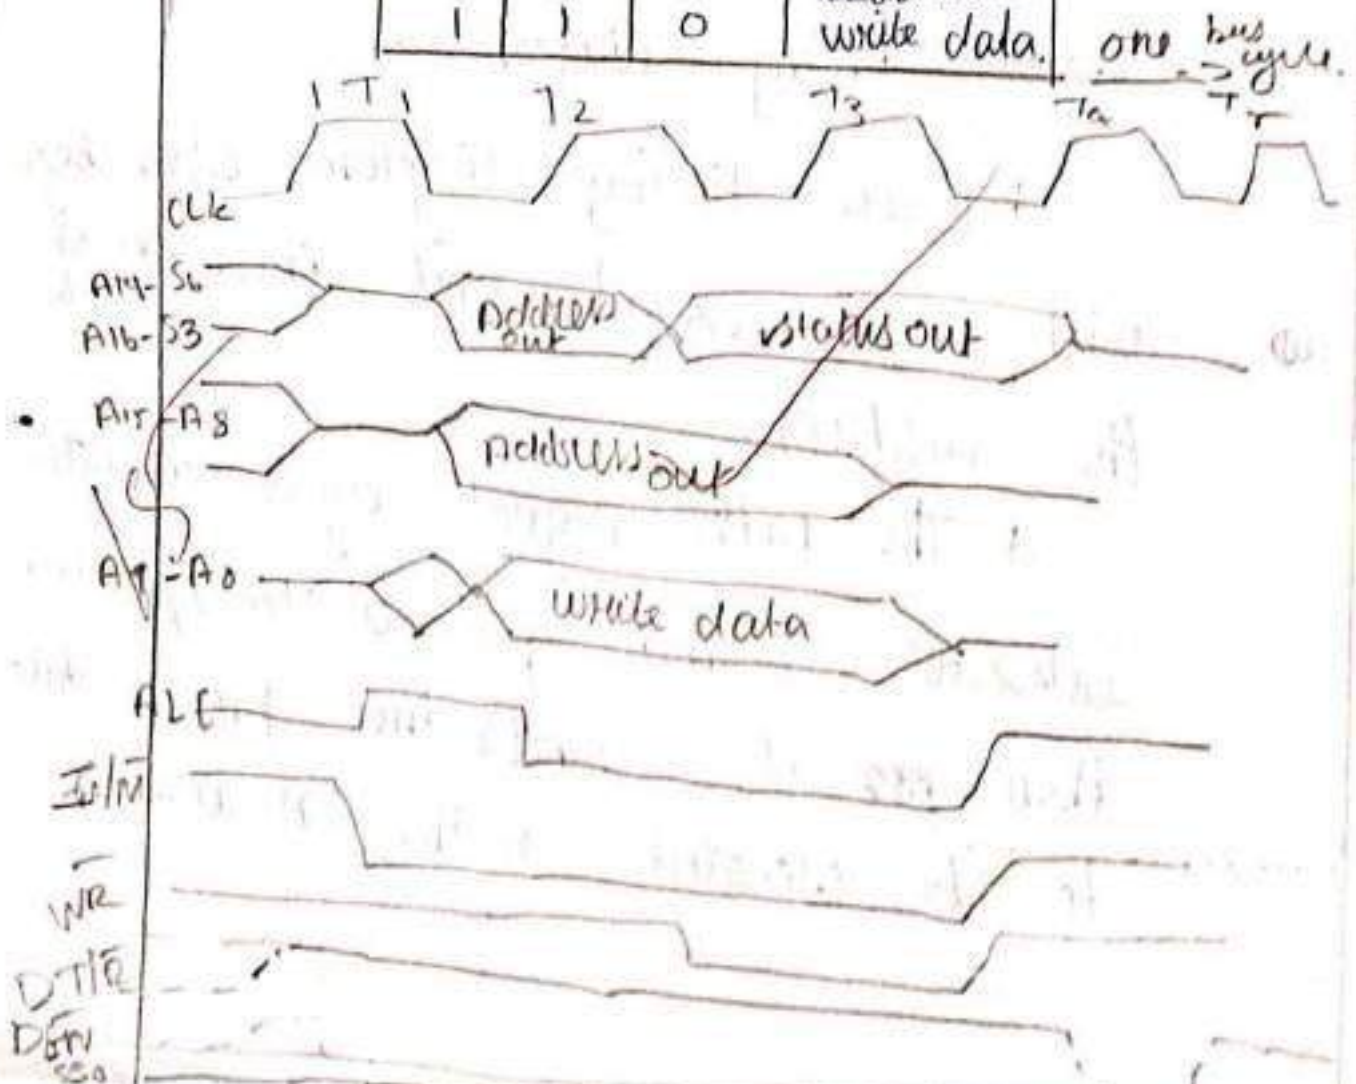 1 1 0 write data. one bus cycle.
T T2 T3 T
CLK
A19-S6
A16-S3
Address out
status out
A15-A8
Address out
-A0
write data
ALE
WR
DT/R
DEN
SSO